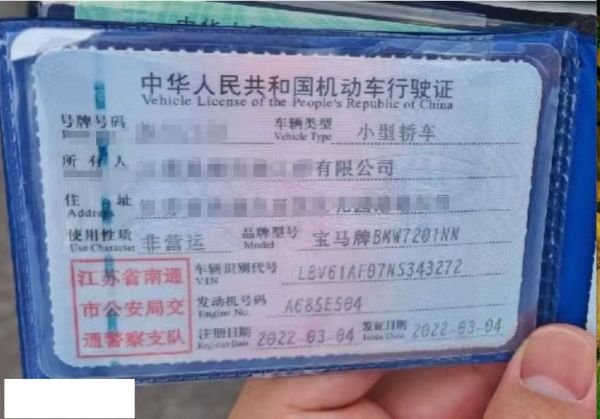 中华人民共和国机动车行驶证
Vehicle License of the People's Republic of China
号牌号码 车辆类型 小型轿车
Vehicle Type
所有人 有限公司
住址
Address
使用性质 非营运 品牌型号 宝马牌BMW7201NN
Use Character Model
江苏省南通
市公安局交
通警察支队
车辆识别代号 LBV61AF07NS343272
VIN
发动机号码 A685E504
Engine No.
注册日期 2022-03-04 发证日期 2022-03-04
Register Date Issue Date